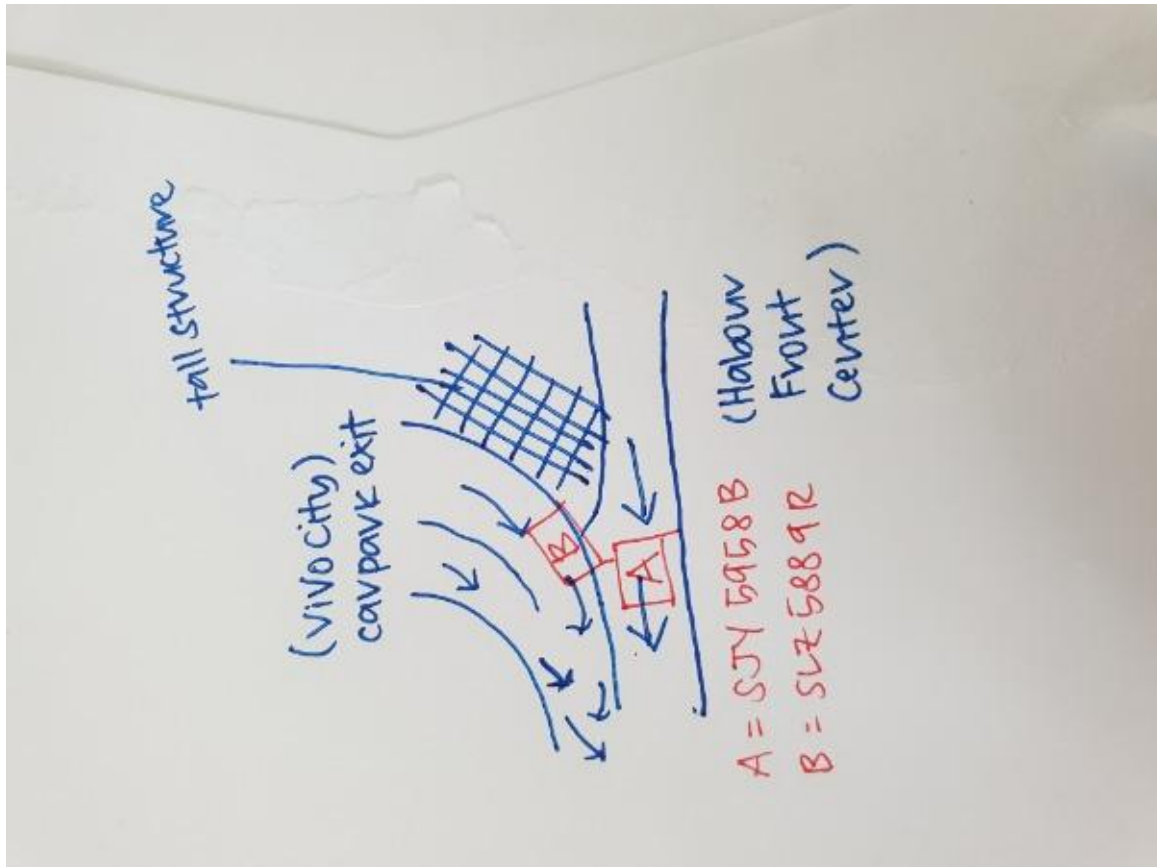 tall structure
(VivoCity)
carpark exit
B
A
(Habour
Front
Center)
A = SJY 5958B
B = SLZ 5889R